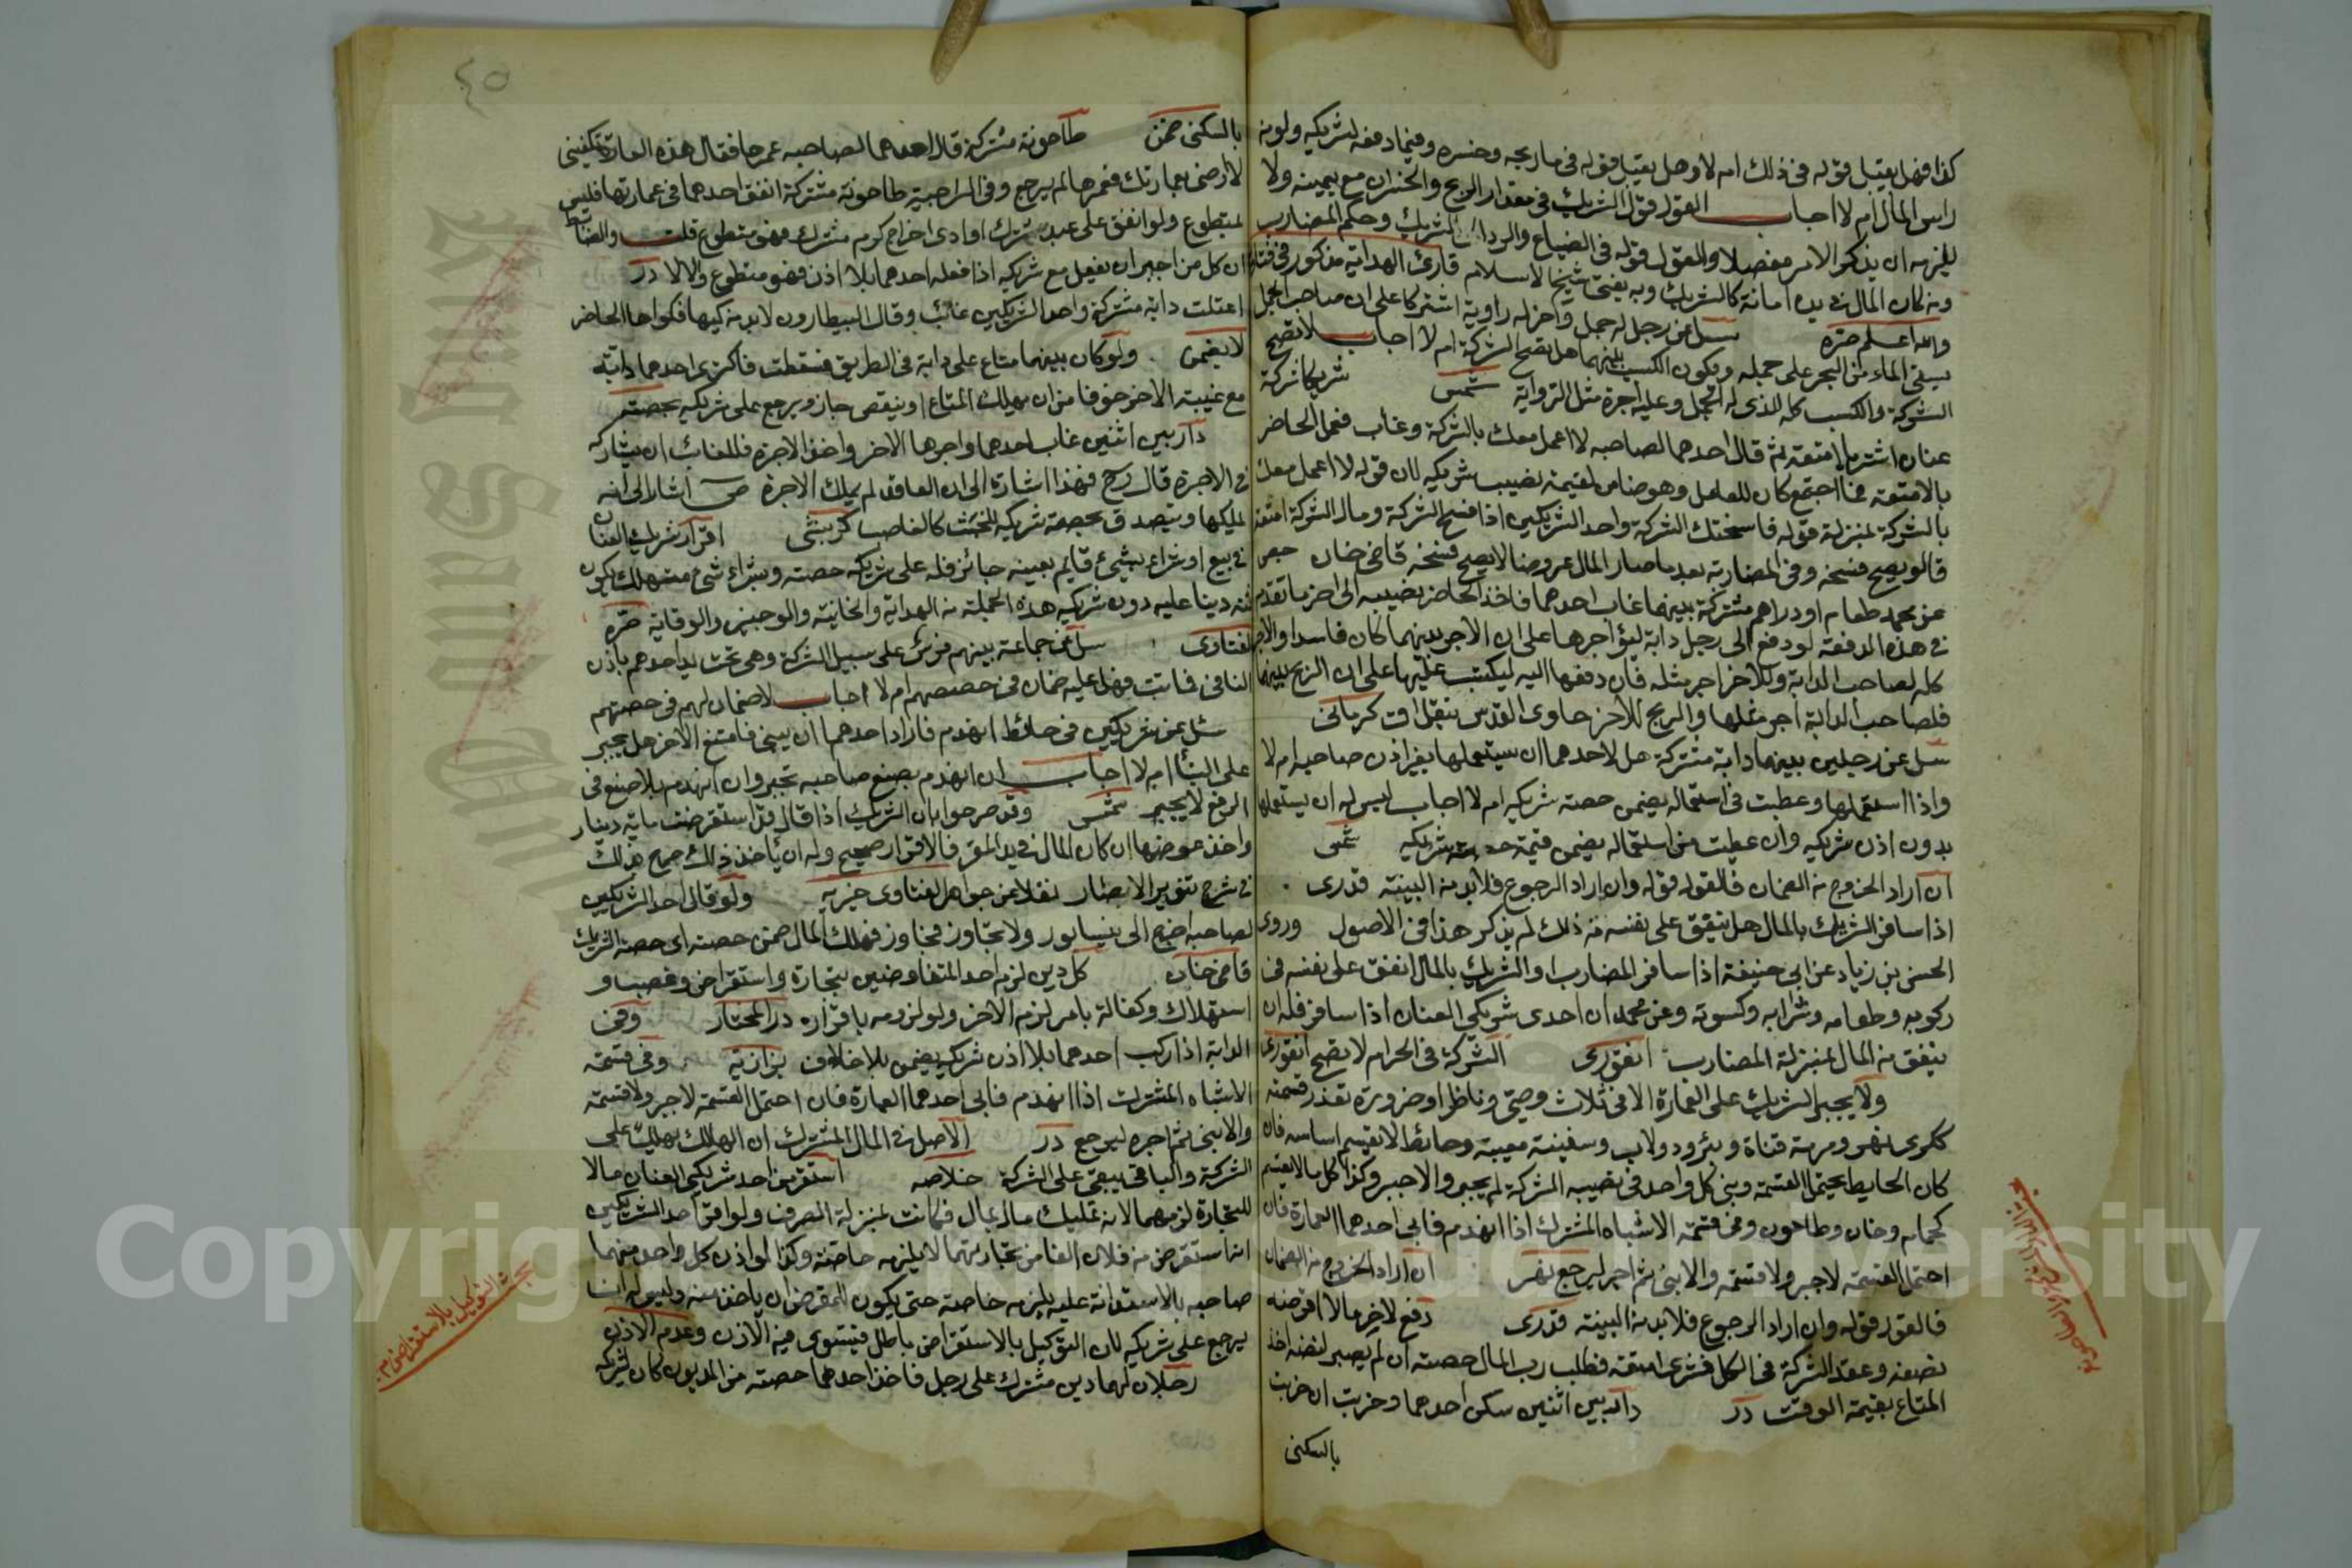 كذا فهل يقبل قوله في ذلك ام لا وهل يقبل قوله في ما ربحه وخسره وفيما دفعه لشريكه ولو من
راس المال ام لا اجاب القول قول الشريك في مقدار الربح والخسران مع يمينه ولا
يلزمه ان يذكر الامر مفصلا والقول قوله في الضياع والرد الى الشريك وحكم المضارب
ومن كان المال في يده امانة كالشريك وبه يفتى شيخ الاسلام قارئ الهداية مذكور في فتاواه
والله اعلم سئل عن رجل له جمل واخر له راوية اشتركا على ان صاحب الجمل
يسقى الماء من البحر على جمله ويكون الكسب بينهما هل تصح الشركة ام لا اجاب لا تصح
الشركة والكسب كله للذى له الجمل وعليه اجرة مثل الراوية شريكا شركة
عنان اشتريا امتعة ثم قال احدهما لصاحبه لا اعمل معك بالشركة وغاب فعمل الحاضر
بالامتعة فما اجتمع كان للعامل وهو ضامن لقيمة نصيب شريكه لان قوله لا اعمل معك
بالشركة بمنزلة قوله فاسختك الشركة واحد الشريكين اذا فسخ الشركة ومال الشركة امتعة
قالو يصح فسخه وفى المضاربة بعد ما صار المال عروضا لا يصح فسخه قاضى خان
عن محمد طعام او دراهم مشتركة بينهما غاب احدهما فاخذ الحاضر نصيبه الى اخر ما تقدم
في هذه الدفعة لو دفع الى رجل دابة ليؤاجرها على ان الاجر بينهما كان فاسدا والاجر
كله لصاحب الدابة وللاخر اجر مثله فان دفعها اليه ليكتسب عليها على ان الربح بينهما
فلصاحب الدابة اجر مثلها والربح للاخر حاوى القدسى
سئل عن رجلين بينهما دابة مشتركة هل لاحدهما ان يستعملها بغير اذن صاحبه ام لا
واذا استعملها وعطبت في استعماله يضمن حصة شريكه ام لا اجاب ليس له ان يستعملها
بدون اذن شريكه وان عطبت من استعماله يضمن قيمة حصة شريكه
ان اراد الخروج من الضمان فالقول قوله وان اراد الرجوع فلا بد من البينة قدرى
اذا سافر الشريك بالمال هل ينفق على نفسه من ذلك لم يذكر هذا في الاصول وروى
الحسن بن زياد عن ابى حنيفة اذا سافر المضارب او الشريك بالمال انفق على نفسه في
ركوبه وطعامه وشرابه وكسوته وعن محمد ان احدى شريكي العنان اذا سافر فله ان
ينفق من المال بمنزلة المضارب انقروى الشركة في الحرام لا تصح انقروى
ولا يجبر الشريك على العمارة الا في ثلاث وصي وناظر او ضرورة تعذر قسمة
ككرى نهر ومرمة قناة وبئر ودولاب وسفينة معيبة وحائط لا يقسم اساسه فان
كان الحايط يحتمل القسمة وبنى كل واحد في نصيبه السترة لم يجبر والا جبر وكذا كل ما لا يقسم
كحمام وخان وطاحون وفى قسمة الاشباه المشترك اذا انهدم فابى احدهما العمارة فان
احتمل القسمة لا جبر ولا قسمة والا بنى ثم اجر ليرجع ان اراد الخروج من الضمان
فالقول قوله وان اراد الرجوع فلا بد من البينة قدرى دفع لاخر مالا اقرضه
نصفه وعقد الشركة في الكل فشرى امتعة فطلب رب المال حصته ان لم يصبر لنضه اخذ
المتاع بقيمة الوقت در دار بين اثنين سكن احدهما وخربت ان خربت
بالسكنى
٤٥
بالسكنى ضمن طاحونة مشتركة قال احدهما لصاحبه عمرها فقال هذه العمارة تكفينى
لا ارضى بعمارتك فعمرها لم يرجع وفى السراجية طاحونة مشتركة انفق احدهما في عمارتها فليس
بمتطوع ولو انفق على عبد مشترك او ادى خراج كرم مشترك فهو متطوع قلت والضابط
ان كل من اجبر ان يفعل مع شريكه اذا فعله احدهما بلا اذن فهو متطوع والا لا در
اعتلت دابة مشتركة واحد الشريكين غائب وقال البيطارون لا بد من كيها فكواها الحاضر
لا يضمن ولو كان بينهما متاع على دابة في الطريق فسقطت فاكترى احدهما دابة
مع غيبة الاخر خوفا من ان يهلك المتاع او ينقص جاز ويرجع على شريكه بحصته
دار بين اثنين غاب احدهما واجرها الاخر واخذ الاجرة فللغائب ان يشاركه
في الاجرة قال فهذا اشارة الى ان العاقد لم يملك الاجرة اشار الى انه
يملكها ويتصدق بحصة شريكه للخبث كالغاصب اقرار شريك العنان
في بيع او شراء بشيء قايم بعينه جائز فله على شريكه حصته وبشراء شئ مستهلك يكون
ثمنه دينا عليه دون شريكه هذه الجملة من الهداية والخانية والوجيز والوقاية
الفتاوى سئل عن جماعة بينهم فرش على سبيل الشركة وهى تحت يد احدهم باذن
الباقى فهل عليه ضمان في حصصهم ام لا اجاب لا ضمان لهم في حصتهم
سئل عن شريكين في حائط انهدم فاراد احدهما ان يبنى فامتنع الاخر هل يجبر
على البناء ام لا اجاب ان انهدم بصنع صاحبه يجبر وان انهدم بلا صنع في
الرفع لا يجبر وقد صرحوا بان الشريك اذا قال قد استقرضت ماية دينار
واخذ عوضها ان كان المال في يد المقر فالاقرار صحيح وله ان يأخذ ذلك
في شرح تنوير الابصار نقلا عن جواهر الفتاوى خيرية ولو قال احد الشريكين
لصاحبه اخرج الى نيسابور ولا تجاوز فجاوز فهلك المال ضمن حصته اى حصة الشريك
قاضى خان كل دين لزم احد المتفاوضين بتجارة واستقراض وغصب و
استهلاك وكفالة بامر لزم الاخر ولو لزومه باقراره در المختار وفى
الدابة اذا ركب احدهما بلا اذن شريكه يضمن بلا خلاف بزازية وفى قسمة
الاشباه المشترك اذا انهدم فابى احدهما العمارة فان احتمل القسمة لا جبر ولا قسمة
والا بنى ثم اجره ليرجع در الاصل في المال المشترك ان الهالك يهلك على
الشركة والباقى يبقى على الشركة خلاصه استقرض احد شريكي العنان مالا
للتجارة لزمهما لانه تمليك مال بمال فكانت بمنزلة الصرف ولو اقر احد الشريكين
انه استقرض من فلان الفا من تجارتهما لا يلزمه خاصة وكذا لو اذن كل واحد منهما
صاحبه بالاستدانة عليه يلزمه خاصة حتى يكون للمقرض ان ياخذ منه وليس له ان
يرجع على شريكه لان التوكيل بالاستقراض باطل فيستوى فيه الاذن وعدم الاذن
رجلان لهما دين مشترك على رجل فاخذ احدهما حصته من المديون كان لشريكه
بحث التوكيل بالاستقراض
Copyright © King Saud University
King Saud Un